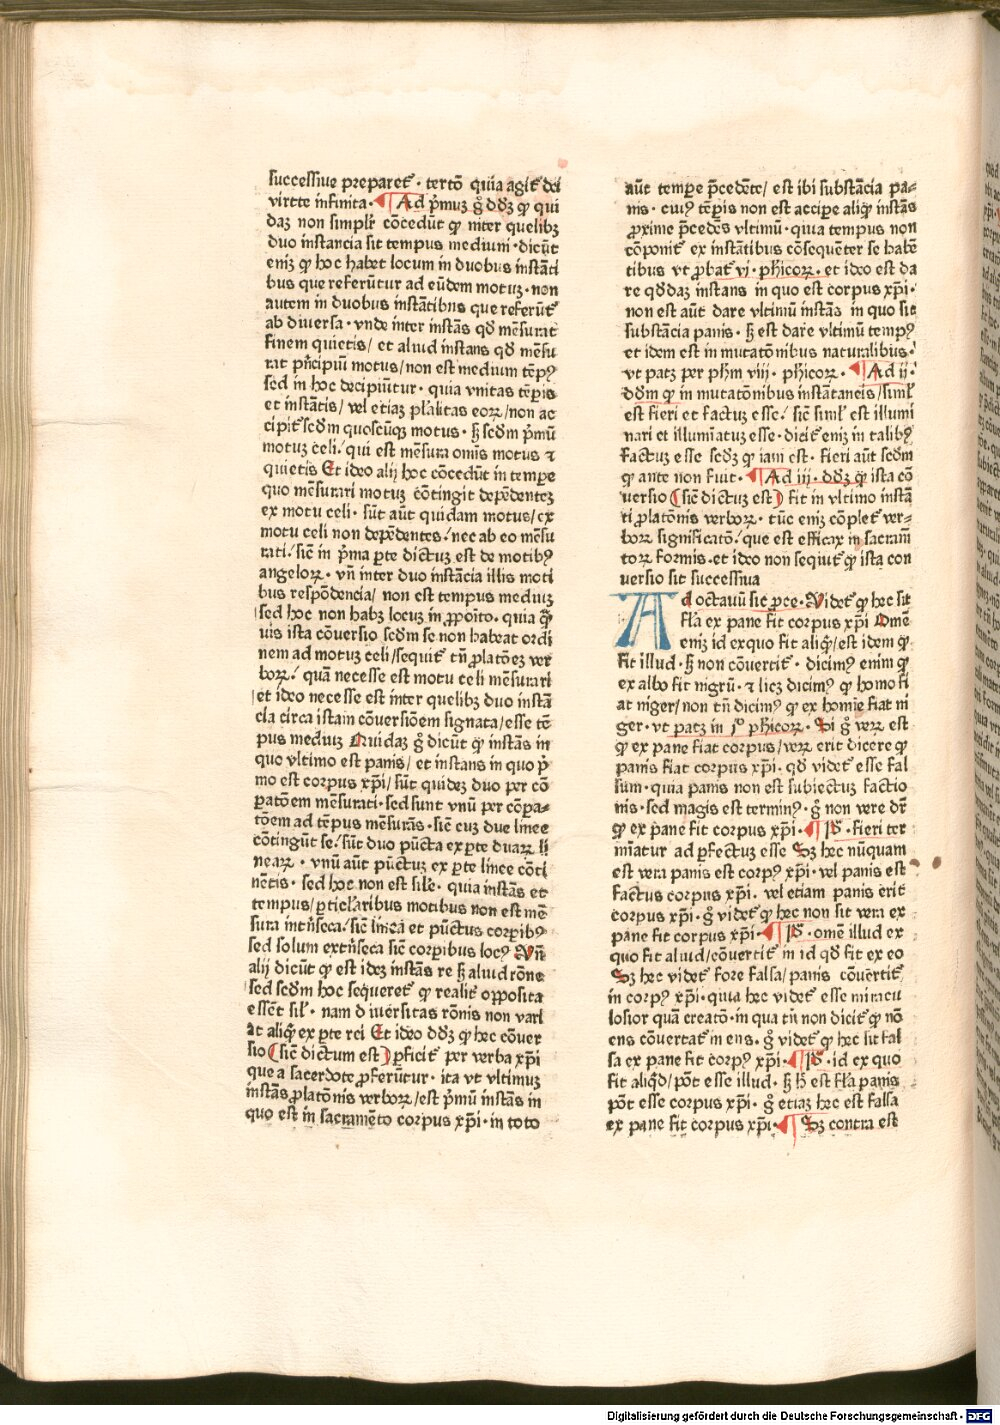 successiue preparet᷑ · tertō quia agit᷑ dei
virtute infinita · Ad p̄muꝫ g̊ dd̄ꝫ ꝙ qui
daꝫ non simplr̄ cōcedūt ꝙ inter quelibꝫ
duo instancia sit tempus medium · dicūt
eniꝫ ꝙ hoc habet locum in duobus instāti
bus que referūtur ad eūdem motuꝫ · non
autem in duobus instātibus que referūt᷑
ab diuersa · vnde inter instās qd̄ mēsurat
finem quietis / et aliud instans qd̄ mēsu
rat pn̄cipiū motus / non est medium tēpꝰ
sed in hoc decipiūtur · quia vnitas tēpis
et instātis / vel etiaꝫ plalitas eoꝝ / non ac
cipit᷑ scd̄m quoscūqꝫ motus · ß scd̄m p̄mū
motuꝫ celi / qui est mēsura om̄is motus ⁊
quietis Et ideo alij hoc cōcedūt in tempe
quo mēsurari motuꝫ cōtingit depēdenteꝫ
ex motu celi · sūt aūt quidam motus / ex
motu celi non depēdentes / nec ab eo mēsu
rati / sic̄ in p̄ma ꝑte dictuꝫ est de motibꝰ
angeloꝝ · vn̄ inter duo instācia illis moti
bus respōdencia / non est tempus mediuꝫ
sed hoc non habꝫ locuꝫ in ꝓposito · quia ꝙ̄
uis ista cōuersio scd̄m se non habeat ordi
nem ad motuꝫ celi / sequit᷑ tn̄ ꝓlatōeꝫ ver
boꝝ / quā necesse est motu celi mēsurari
et ideo necesse est inter quelibꝫ duo instā
cia circa istam cōuersiōem signata / esse tē
pus mediuꝫ Quidaꝫ g̊ dicūt ꝙ instās in
quo vltimo est panis / et instans in quo p̄
mo est corpus xp̄i / sūt quideꝫ duo per cō
ꝑatōem mēsurati · sed sunt vnū per cōpa-
tōem ad tēpus mēsurās · sic̄ cuꝫ due linee
cōtingūt se / sūt duo pūcta ex ꝑte duaꝝ li
neaꝝ · vnū aūt pūctuꝫ ex ꝑte linee cōti
nētis · sed hoc non est sile · quia instās et
tempus / ꝑticl̄aribus motibus non est mē
sura int̄nseca / sic̄ linea et pūctus corpibꝰ
sed solum ext̄nseca sic̄ corpibus locꝰ Vn̄
alij dicūt ꝙ est ideꝫ instās re ß aliud rōne
sed scd̄m hoc sequeret᷑ ꝙ realit᷑ opposita
essēt sil̄ · nam diuersitas rōnis non vari
at aliqͥ ex ꝑte rei Et ideo dd̄ꝫ ꝙ hec cōuer
sio (sic̄ dictum est) ꝑficit᷑ per verba xp̄i
que a sacerdote ꝓferūtur · ita vt vltimuꝫ
instās ꝓlatōnis verboꝝ / est p̄mū instās in
quo est in sacramēto corpus xp̄i · in toto
aūt tempe p̄cedēte / est ibi substācia pa-
nis · cuiꝰ tēpis non est accipe aliqͥ instās
ꝓxime p̄cedēs vltimū · quia tempus non
cōponit᷑ ex instātibus cōsequēter se habē
tibus vt ꝓbat᷑ vi · phicoꝝ · et ideo est da
re qd̄daꝫ instans in quo est corpus xp̄i ·
non est aūt dare vltimū instās in quo sit
substācia panis · ß est dare vltimū tempꝰ
et idem est in mutatōnibus naturalibus ·
vt patꝫ per phm viii · phicoꝝ · Ad ii ·
dd̄m ꝙ in mutatōnibus instātaneis / siml̄
est fieri et factuꝫ esse / sic̄ siml̄ est illumi
nari et illumiatuꝫ esse · dicit᷑ eniꝫ in talibꝰ
factuꝫ esse scd̄ꝫ ꝙ iam est · fieri aūt scd̄m
ꝙ ante non fuit · Ad iii · dd̄ꝫ ꝙ ista cō
uersio (sic̄ dictuꝫ est) fit in vltimo instā
ti ꝓlatōnis verboꝝ · tūc eniꝫ cōplet᷑ ver-
boꝝ significatō / que est efficax in sacram̄
toꝝ formis · et ideo non sequit᷑ ꝙ ista con
uersio sit successiua
Ad octauū sic ꝓce · Videt᷑ ꝙ hec sit
fl̄a ex pane fit corpus xp̄i Omē
eniꝫ id exquo fit aliqͥ / est idem ꝙ
fit illud · ß non cōuertit᷑ · dicimꝰ enim ꝙ
ex albo fit nigrū · ⁊ licꝫ dicimꝰ ꝙ homo fi
at niger / non tn̄ dicimꝰ ꝙ ex homīe fiat ni
ger · vt patꝫ in pͦ phicoꝝ · Si g̊ veꝝ est
ꝙ ex pane fiat corpus / veꝝ erit dicere ꝙ
panis fiat corpus xp̄i · qd̄ videt᷑ esse fal
sum · quia panis non est subiectus factio
nis · sed magis est terminꝰ · g̊ non vere dr̄
ꝙ ex pane fit corpus xp̄i · P̄ · fieri ter
miatur ad ꝑfectuꝫ esse Sꝫ hec nūquam
est vera panis est corpꝰ xp̄i · vel panis est
factus corpus xp̄i · vel etiam panis erit
corpus xp̄i · g̊ videt᷑ ꝙ hec non sit vera ex
pane fit corpus xp̄i · P̄ · omē illud ex
quo fit aliud / cōuertit᷑ in id qd̄ fit ex eo
Sꝫ hec videt᷑ fore falsa / panis cōuertit᷑
in corpꝰ xp̄i · quia hec videt᷑ esse miracu
losior quā creatō · in qua tn̄ non dicit᷑ ꝙ nō
ens cōuertat᷑ in ens · g̊ videt᷑ ꝙ hec sit fal
sa ex pane fit corpꝰ xp̄i · P̄ · id ex quo
fit aliqd̄ / pōt esse illud · ß h̄ est fl̄a panis
pōt esse corpus xp̄i · g̊ etiaꝫ hec est falsa
ex pane fit corpus xp̄i · Sꝫ contra est
Digitalisierung gefördert durch die Deutsche Forschungsgemeinschaft - DFG